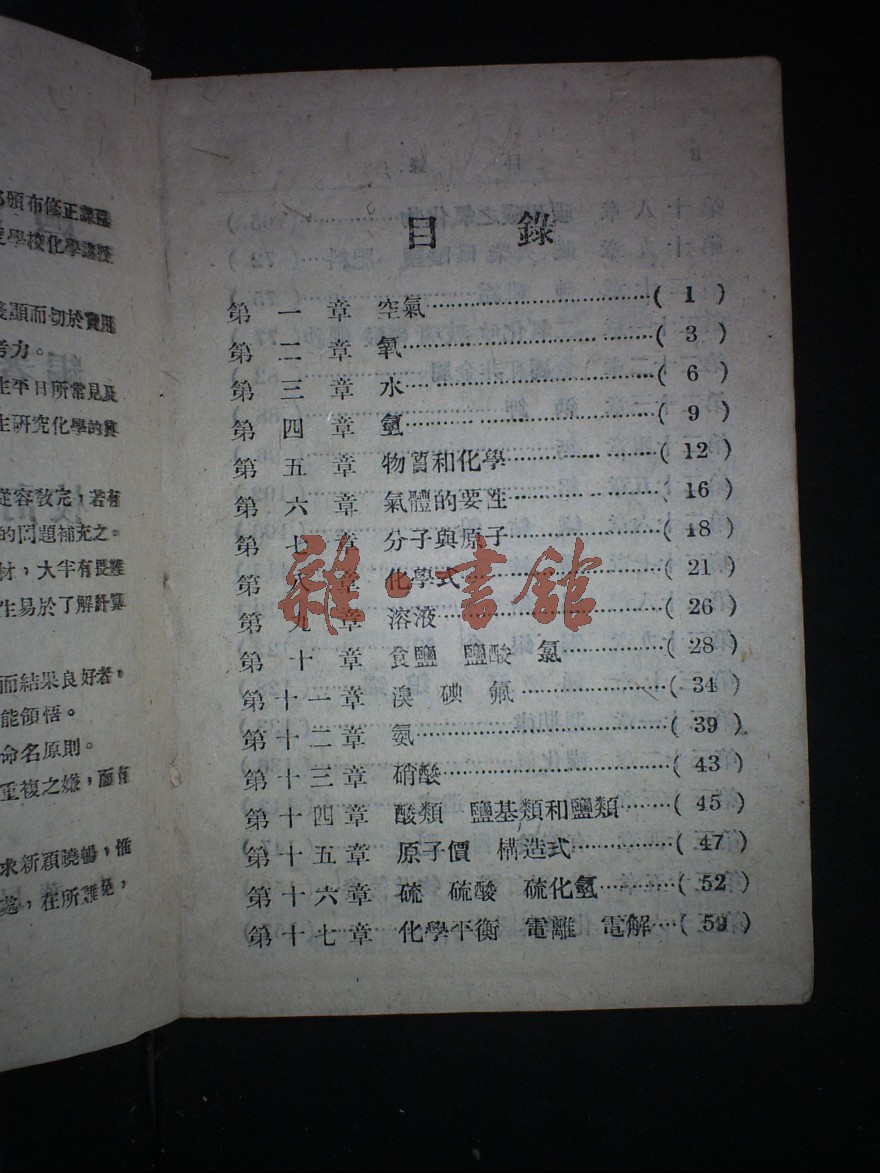 目錄
第一章 空氣……(1)
第二章 氧……(3)
第三章 水……(6)
第四章 氫……(9)
第五章 物質和化學……(12)
第六章 氣體的要性……(16)
第七章 分子與原子……(18)
第八章 化學式……(21)
第九章 溶液……(26)
第十章 食鹽 鹽酸 氯……(28)
第十一章 溴 碘 氟……(34)
第十二章 氨……(39)
第十三章 硝酸……(43)
第十四章 酸類 鹽基類和鹽類……(45)
第十五章 原子價 構造式……(47)
第十六章 硫 硫酸 硫化氫……(52)
第十七章 化學平衡 電離 電解……(59)
雜·書館
頒布修正課程
學校化學講授
顯而切於實用
考力。
生平日所常見及
生研究化學的興
從容教完,若有
的問題補充之。
材,大半有畏難
生易於了解計算
而結果良好者,
能領悟。
命名原則。
重複之嫌,而有
求新穎曉暢,惟
處,在所難免,